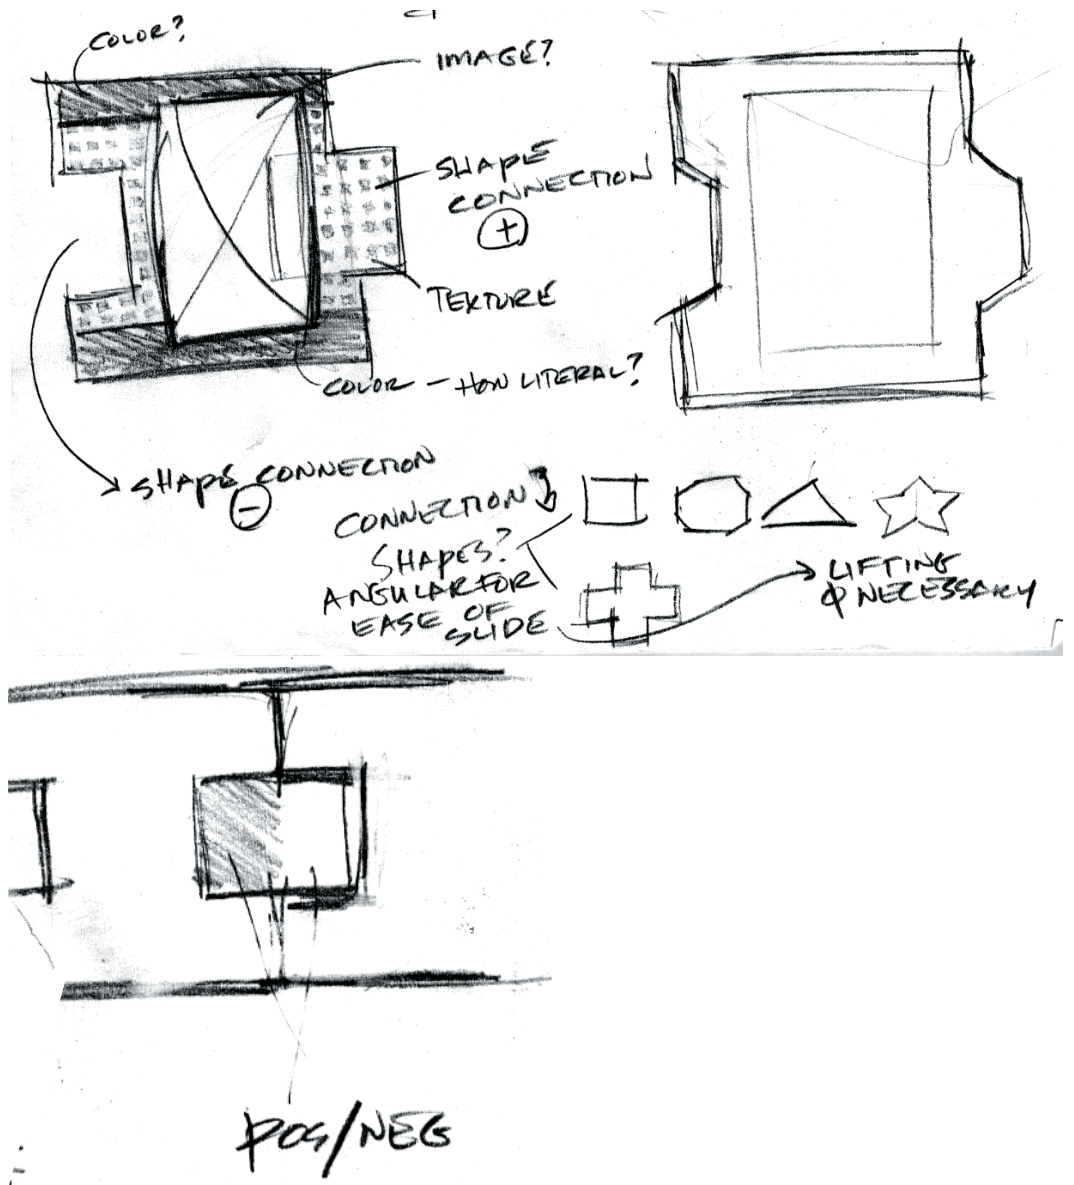 COLOR?
IMAGE?
SHAPE
CONNECTION
+
TEXTURE
COLOR - HOW LITERAL?
SHAPE CONNECTION
-
CONNECTION
SHAPES?
ANGULAR FOR
EASE OF
SLIDE
LIFTING
NECESSARY
POS/NEG